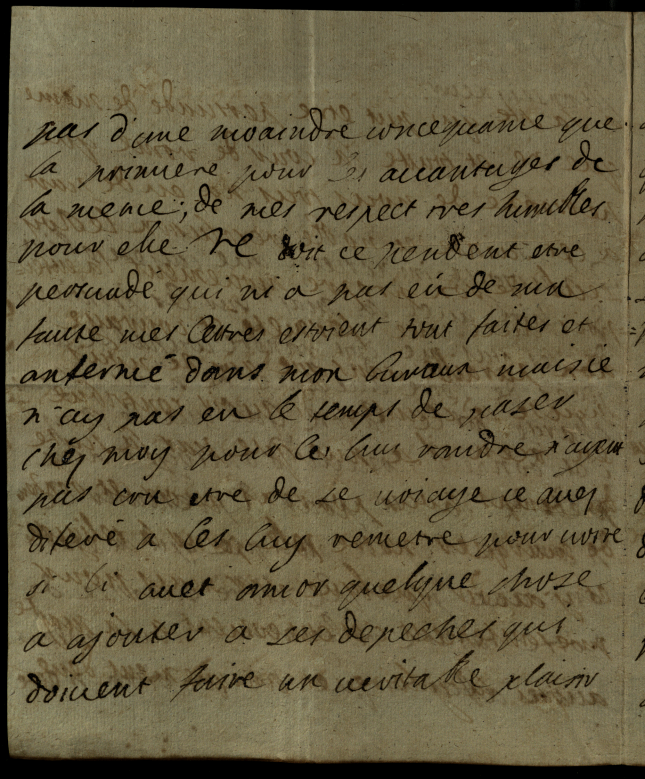 pas d'une moaindre concequance que
la primiere pour les auantages de
la meme, de mes respect tres humbles
pour elle Ve doit ce pendent etre
persuadé qui ni a pas eü de ma
faute mes lettres estoient tout faites et
anfermé dans mon bureaux mais ie
n'ay pas eu le temps de paser
chez moy pour les luy randre n'ayant
pas cru etre de se uoiage ie aues
diferé a les luy remetre pour uoire
si li auet ancor quelque chose
a ajouter a ses depeches qui
doiuent faire un ueritable plaisir